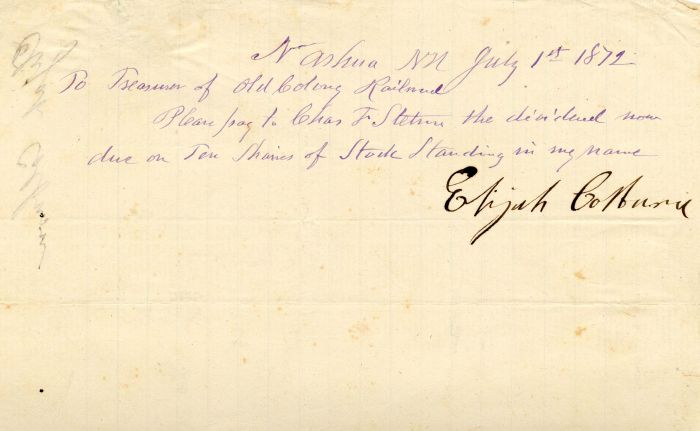 Nashua NH July 1st 1872
To Treasurer of Old Colony Railroad
Please pay to Chas F the dividend now
due on Ten Shares of Stock Standing in my name
Elijah Colburn